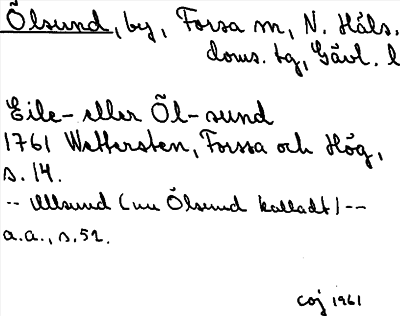 Ölsund, by, Forsa sn, N. Häls.
doms. tg, Gävl. l
Eile- eller Öl- sund
1761 Wettersten, Forssa och Hög,
s. 14.
-- Ulsund (nu Ölsund kalladt) --
a.a., s. 52.
COJ 1961